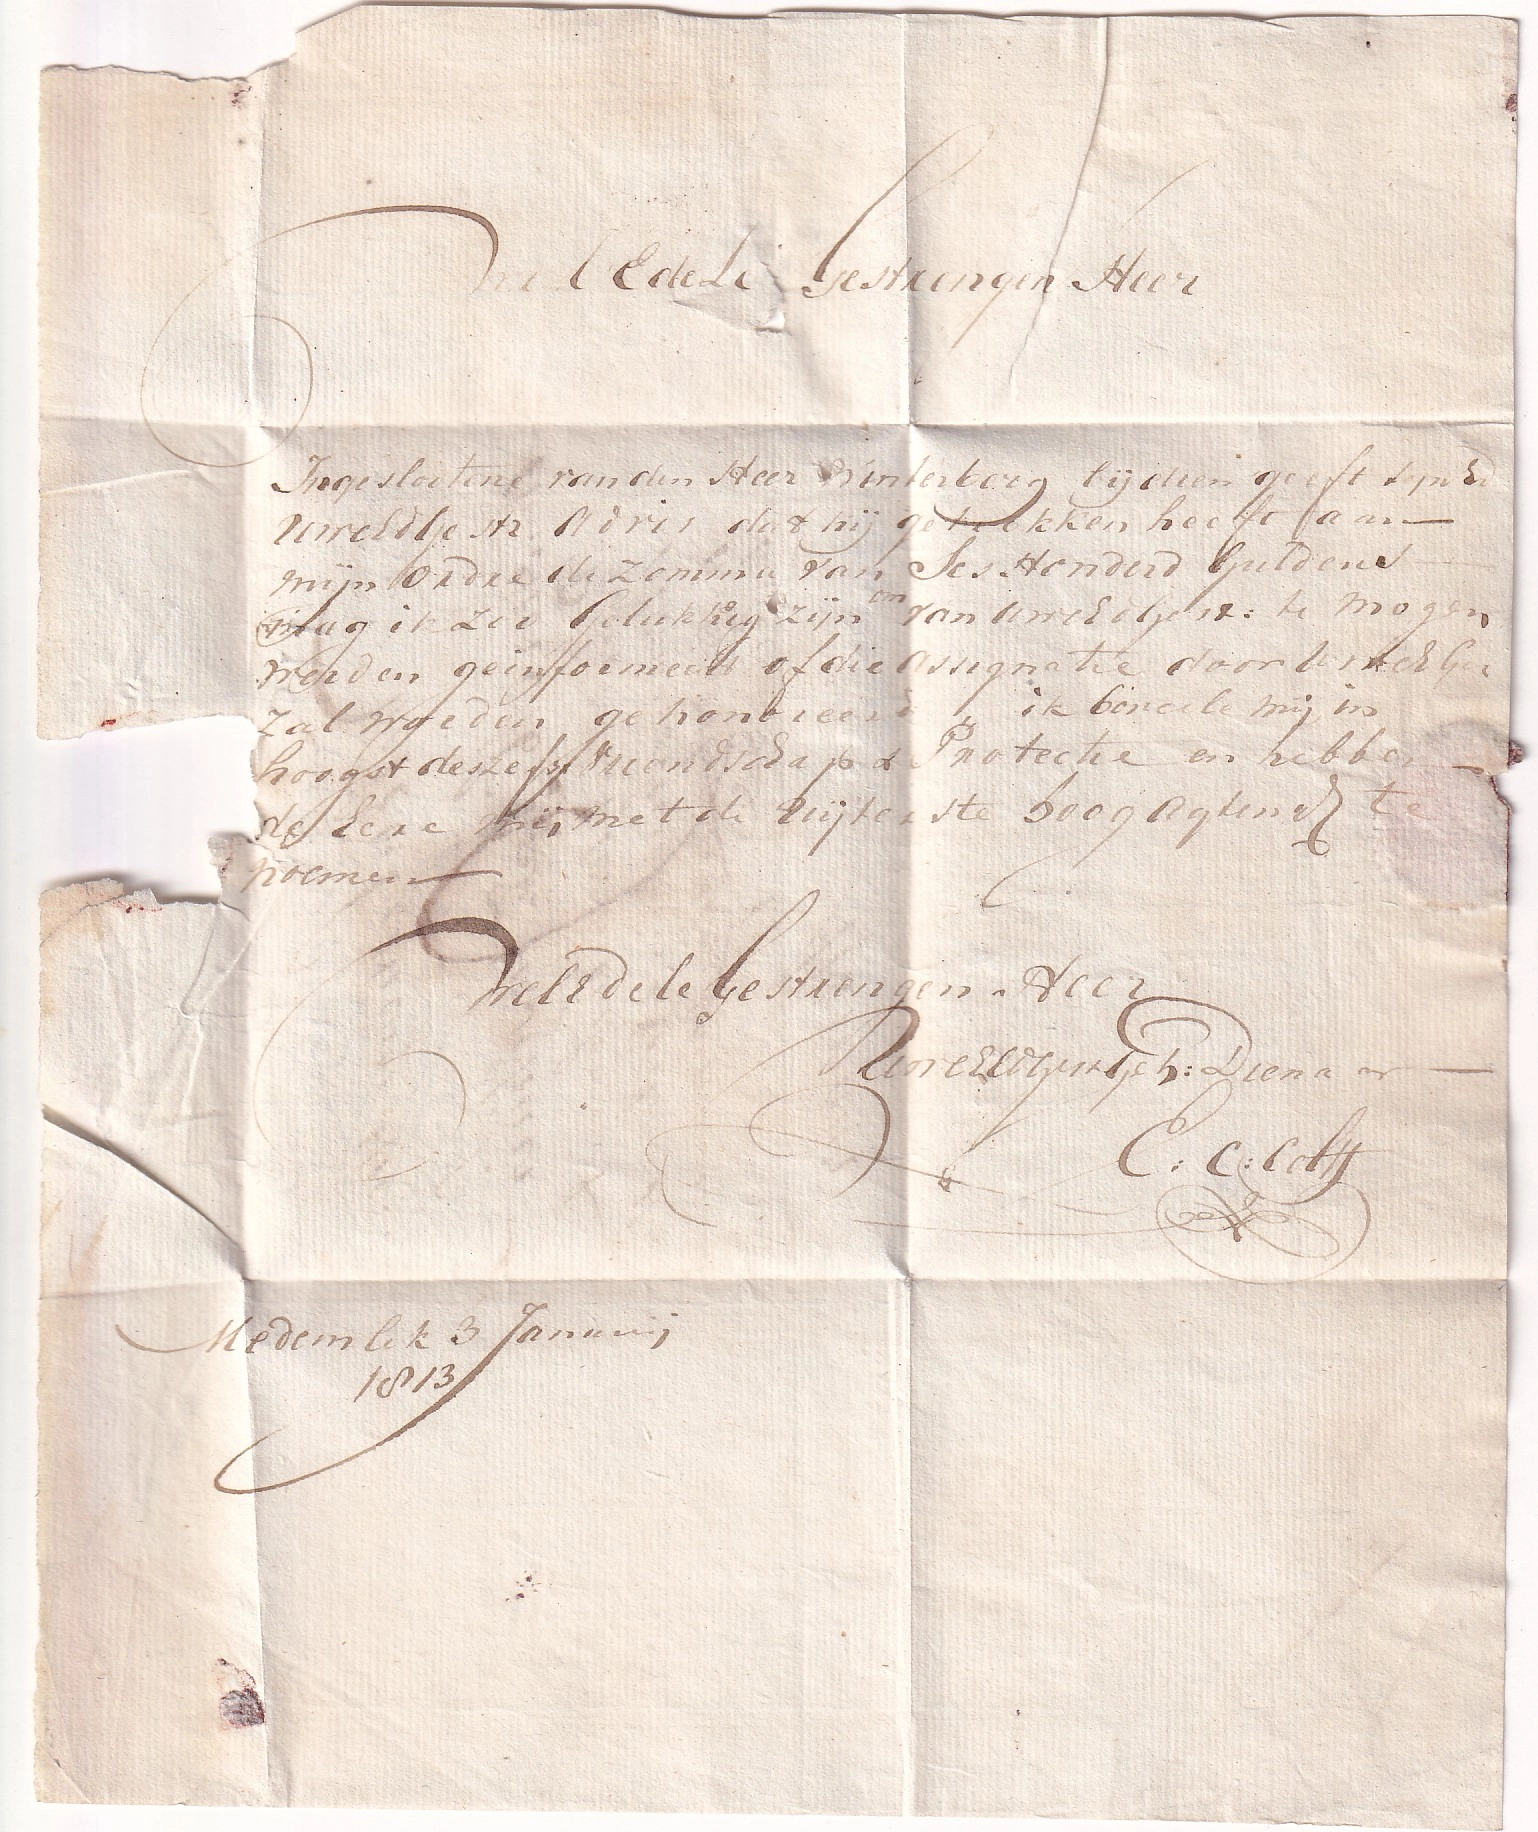 Wel Edele Gestrengen Heer
Ingeslootene van den Heer Winterberg bij dien geeft
UwelEdGestr Advis dat hij getrokken heeft aan
mijn Ordre de Zomma van Ses Honderd Guldens
mag ik zoo Gelukkig zijn om van UwelEdGestr: te Mogen
werden geinformeerd of die Assignatie door
Zal worden gehonoreerd, ik beveele Mij in
hoogst deszelfs Vriendschap & Protectie en hebbe
de Eere Mij met de Uijterste hoog Agting te
noemen
WelEdele Gestrengen Heer
UwelEdGestr Geh: Dienaar
C: C: Colff
Medemblik 3 Januarij
1813